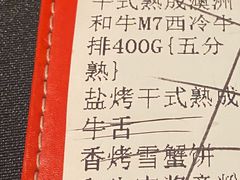 干式熟成澳洲
和牛M7西冷牛
排400G{五分
熟}
盐烤干式熟成
牛舌
香烤雪蟹饼